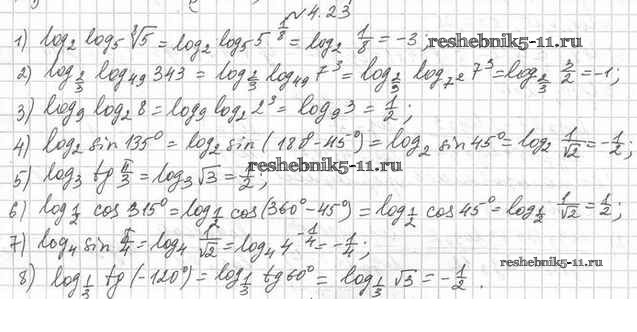 №4.23
1) log₂ log₅ ⁸√5 = log₂ log₅ 5^(1/8) = log₂ 1/8 = -3; reshebnik5-11.ru
2) log_(2/3) log₄₉ 343 = log_(2/3) log₄₉ 7³ = log_(2/3) log_(7²) 7³ = log_(2/3) 3/2 = -1;
3) log₉ log₂ 8 = log₉ log₂ 2³ = log₉ 3 = 1/2;
4) log₂ sin 135° = log₂ sin (180-45°) = log₂ sin 45° = log₂ 1/√2 = -1/2;
reshebnik5-11.ru
5) log₃ tg π/3 = log₃ √3 = 1/2;
6) log_(1/2) cos 315° = log_(1/2) cos (360°-45°) = log_(1/2) cos 45° = log_(1/2) 1/√2 = 1/2;
7) log₄ sin π/4 = log₄ 1/√2 = log₄ 4^(-1/4) = -1/4;
reshebnik5-11.ru
8) log_(1/3) tg (-120°) = log_(1/3) tg 60° = log_(1/3) √3 = -1/2.